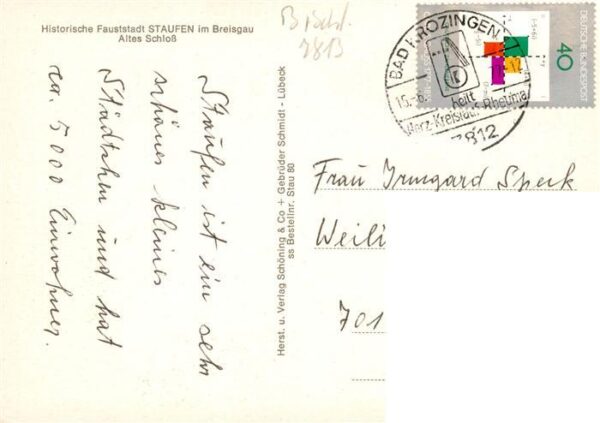 Historische Fauststadt STAUFEN im Breisgau
Altes Schloß
Staufen ist ein sehr
schönes kleines
Städtchen und hat
ca. 5000 Einwohner.
Herst. u. Verlag Schöning & Co + Gebrüder Schmidt - Lübeck
ss Bestellnr. Stau 80
7813
BAD KROZINGEN
15.-6.
heilt
Herz-Kreislauf-Rheuma
7812
DEUTSCHE BUNDESPOST
40
Frau Irmgard Speck
Weili
701